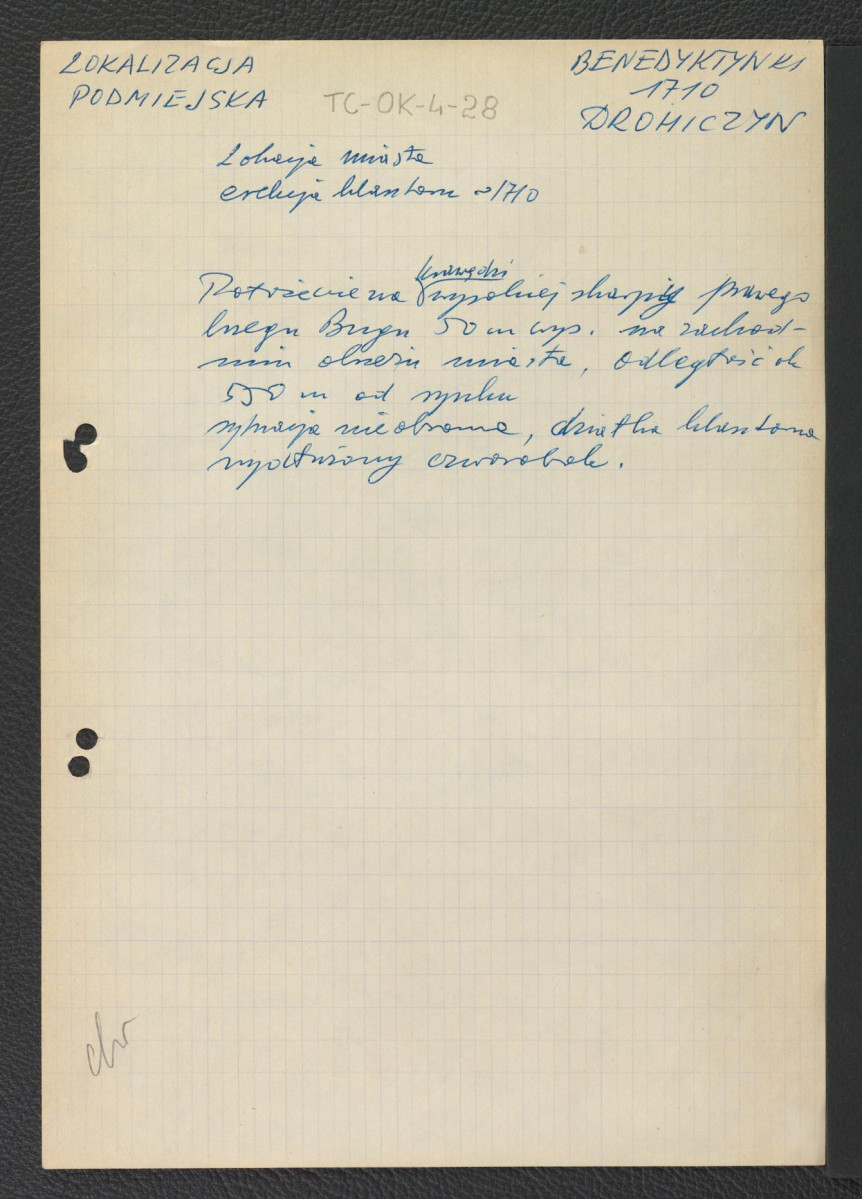 LOKALIZACJA
PODMIEJSKA
TC-OK-4-28
BENEDYKTYNKI
1710
DROHICZYN
Lokacja miasta
erekcja klasztoru ~1710
Położenie na krawędzi wysokiej skarpy prawego
brzegu Bugu 50 m wys. na zachod-
nim obrzeżu miasta, odległość ok
550 m od rynku
sytuacja nieobronna, działka klasztorna
wydłużony czworobok.